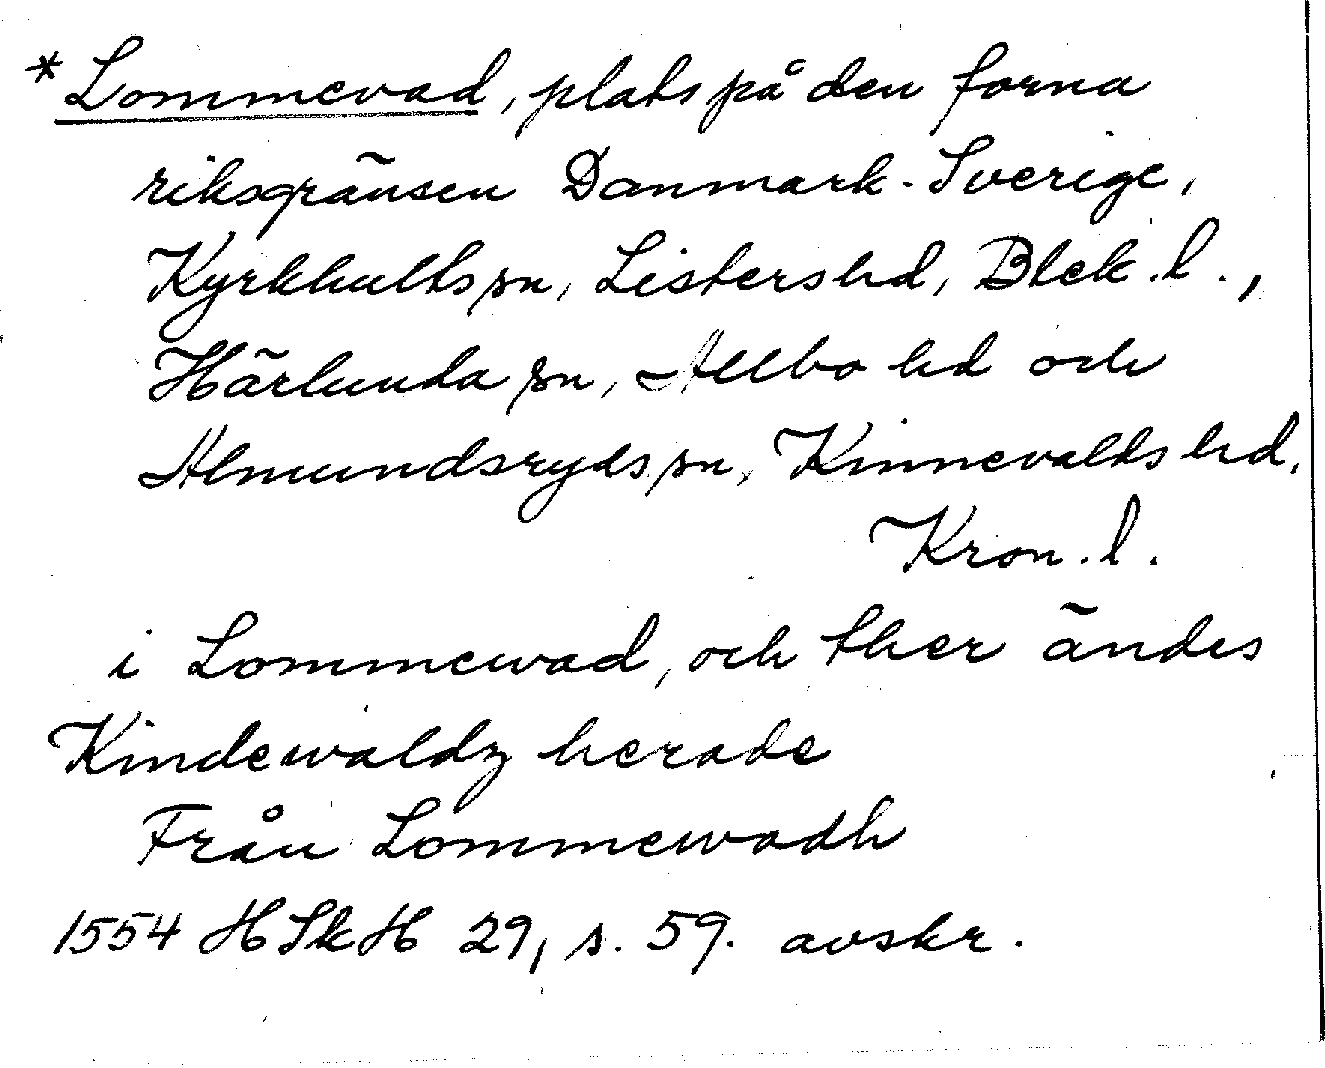 *Lommevad, plats på den forna
riksgränsen Danmark-Sverige,
Kyrkhults sn, Listers hd, Blek. l.,
Härlunda sn, Allbo hd och
Almundsryds sn, Kinnevalds hd,
Kron. l.
i Lommewad, och ther ändes
Kindewaldz herade
Från Lommewadh
1554 HSkH 29, s. 59. avskr.